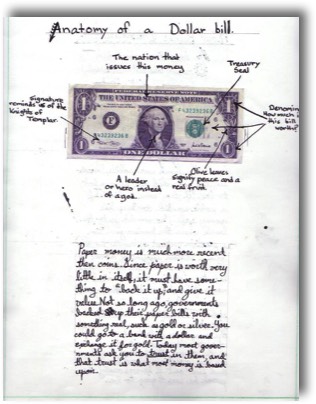 Anatomy of a Dollar bill.
The nation that
issues this money
Treasury
Seal
Signature
reminds us of the
Knights of
Templar.
Denomin
How much is
this bill
worth?
THE UNITED STATES OF AMERICA
ONE DOLLAR
A leader
or hero instead
of a god.
Olive leaves
signify peace and a
real fruit.
Paper money is much more recent
then coins. Since paper is worth very
little in itself, it must have some-
thing to "back it up" and give it
value. Not so long ago, governments
backed up their paper bills with
something real, such as gold or silver. You
could go to a bank with a dollar and
exchange it for gold. Today most gover-
nments ask you to trust in them, and
that trust is what most money is based
upon.